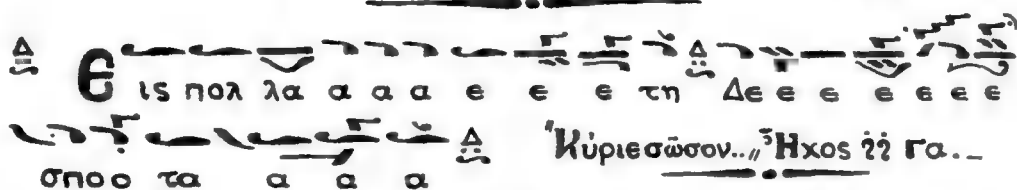 Εις πολ λα α α α ε ε ε τη Δε ε ε ε ε ε ε
σπο ο τα α α α "Κύριε σῶσον..„ Ἦχος γα._